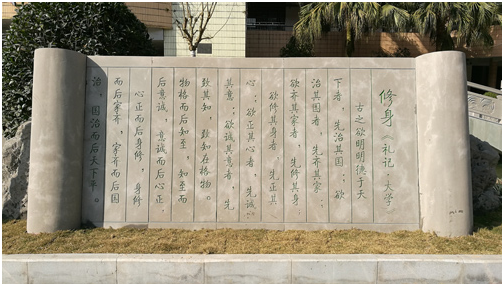 修身《礼记·大学》
古之欲明明德于天
下者，先治其国；欲
治其国者，先齐其家；
欲齐其家者，先修其身；
欲修其身者，先正其
心；欲正其心者，先诚
其意；欲诚其意者，先
致其知，致知在格物。
物格而后知至，知至而
后意诚，意诚而后心正，
心正而后身修，身修
而后家齐，家齐而后国
治，国治而后天下平。